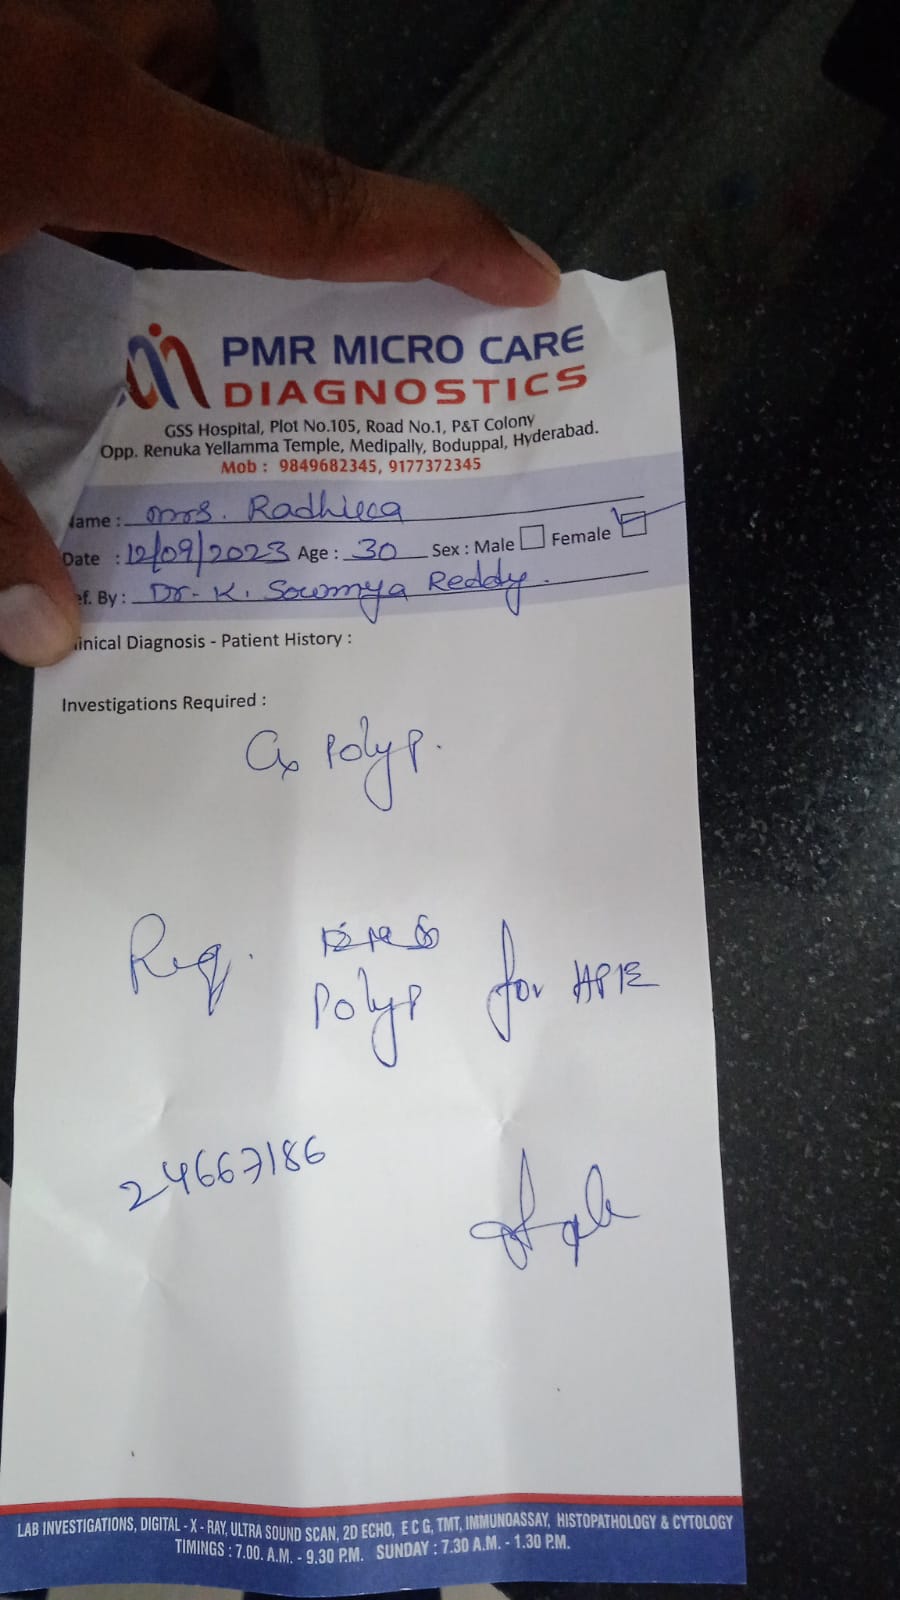 PMR MICRO CARE
DIAGNOSTICS
GSS Hospital, Plot No.105, Road No.1, P&T Colony
Opp. Renuka Yellamma Temple, Medipally, Boduppal, Hyderabad.
Mob : 9849682345, 9177372345
Name : Mrs. Radhika
Date : 12/09/2023 Age : 30 Sex : Male Female
ef. By : Dr. K. Sowmya Reddy.
inical Diagnosis - Patient History :
Investigations Required :
Cx Polyp.
Req.
Polyp for HPE
24667186
LAB INVESTIGATIONS, DIGITAL - X - RAY, ULTRA SOUND SCAN, 2D ECHO, E C G, TMT, IMMUNOASSAY, HISTOPATHOLOGY & CYTOLOGY
TIMINGS : 7.00. A.M. - 9.30 P.M. SUNDAY : 7.30 A.M. - 1.30 P.M.